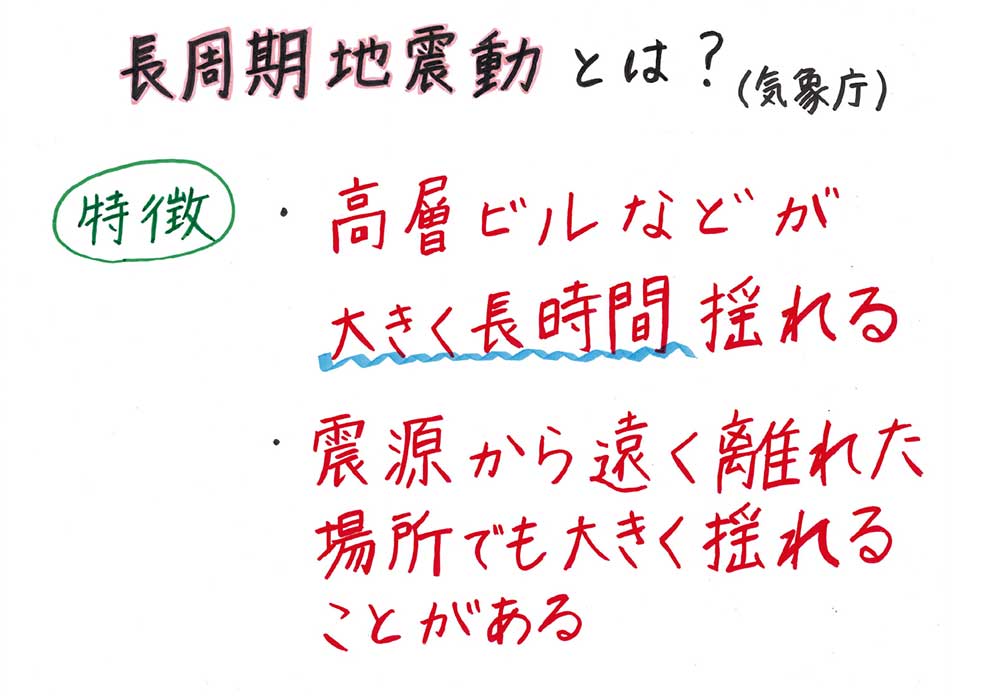 長周期地震動とは?(気象庁)
特徴 ・高層ビルなどが
大きく長時間揺れる
・震源から遠く離れた
場所でも大きく揺れる
ことがある